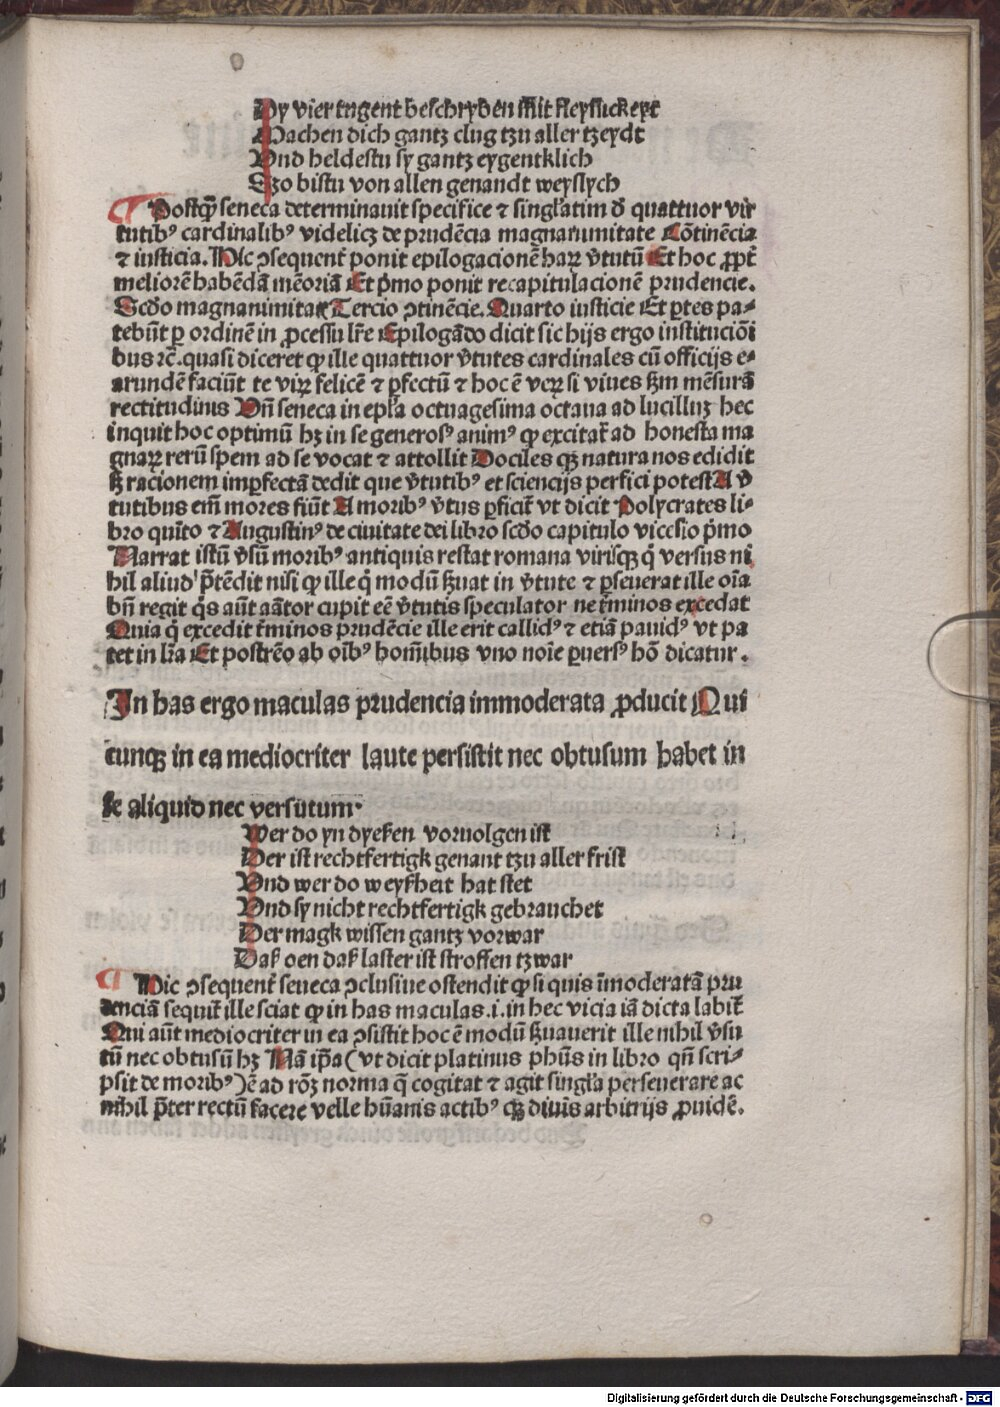 Dy vier tugent beschryben mit fleyssickeyt
Machen dich gantz clug tzu aller tzeydt
Vnd heldestu sy gantz eygentklich
Szo bistu von allen genandt weyslych
¶ Postqꝫ seneca determinauit specifice ⁊ singl'atim d̄ quattuor vir
tutibꝰ cardinalibꝰ videlicꝫ de prudēcia magnanimitate Cōtinēcia
⁊ iusticia. Hic ꝯsequent̄ ponit epilogacionē haꝝ v̄tutū Et hoc ꝓpt̄
meliorē habēdā mēoriā Et p̄mo ponit recapitulacionē prudencie.
Scd̄o magnanimitatꝭ Tercio ꝯtinēcie. Quarto iusticie Et ꝑtes pa⸗
tebūt ꝑ ordinē in ꝓcessu lr̄e Epilogādo dicit sic hijs ergo institucōi
bus ⁊c̄. quasi diceret ꝙ ille quattuor v̄tutes cardinales cū officijs e⸗
arundē faciūt te viꝝ felicē ⁊ ꝑfectū ⁊ hoc ē veꝝ si viues ẜm mēsurā
rectitudinis Vn̄ seneca in epl'a octuagesima octaua ad lucilluꝫ hec
inquit hoc optimū hꝫ in se generosꝰ animꝰ ꝙ excitat̄ ad honesta ma
gnaꝝ rerū spem ad se vocat ⁊ attollit Dociles qꝫ natura nos edidit
ꝫ racionem imꝑfectā dedit que v̄tutibꝰ et sciencijs perfici potest A v̄
tutibus em̄ mores fiūt A moribꝰ v̄tus ꝑficit̄ vt dicit Polycrates li⸗
bro quīto ⁊ Augustinꝰ de ciuitate dei libro scd̄o capitulo vicesīo p̄mo
Narrat istū v̄sū moribꝰ antiquis restat romana virisqꝫ q̄ versus ni
hil aliud p̄tēdit nisi ꝙ ille q̄ modū ẜuat in v̄tute ⁊ ꝑseuerat ille oīa
bn̄ regit q̄s aūt aātor cupit eē v̄tutis speculator ne t̄minos excedat
Quia q̄ excedit t̄minos prudēcie ille erit callidꝰ ⁊ etiā pauidꝰ vt pa
tet in lr̄a Et postrēo ab oībꝰ homībus vno noīe ꝑuersꝰ hō dicatur.
In has ergo maculas prudencia immoderata ꝓducit Qui
cunqꝫ in ea mediocriter laute persistit nec obtusum habet in
se aliquid nec versutum.
Wer do yn dyeßen vormolgen ist
Der ist rechtfertigk genant tzu aller frist
Vnd wer do weyßheit hat stet
Vnd sy nicht rechtfertigk gebrauchet
Der magk wissen gantz vorwar
Daß oen daß laster ist stroffen tzwar
¶ Hic ꝯsequent̄ seneca ꝯclusiue ostendit ꝙ si quis īmoderatā pru
denciā sequit̄ ille sciat ꝙ in has maculas .i. in hec vicia iā dicta labit̄
Qui aūt mediocriter in ea ꝯsistit hoc ē modū ẜuauerit ille nihil v̄su
tū nec obtusū hꝫ Nā ip̄a (vt dicit platinus ph̄us in libro qn̄ scri⸗
psit de moribꝰ) ē ad rōꝫ norma q̄ cogitat ⁊ agit singl'a perseuerare ac
nihil p̄ter rectū facere velle hūanis actibꝰ qꝫ diuīs arbitrijs ꝓuidē.
Digitalisierung gefördert durch die Deutsche Forschungsgemeinschaft - DFG